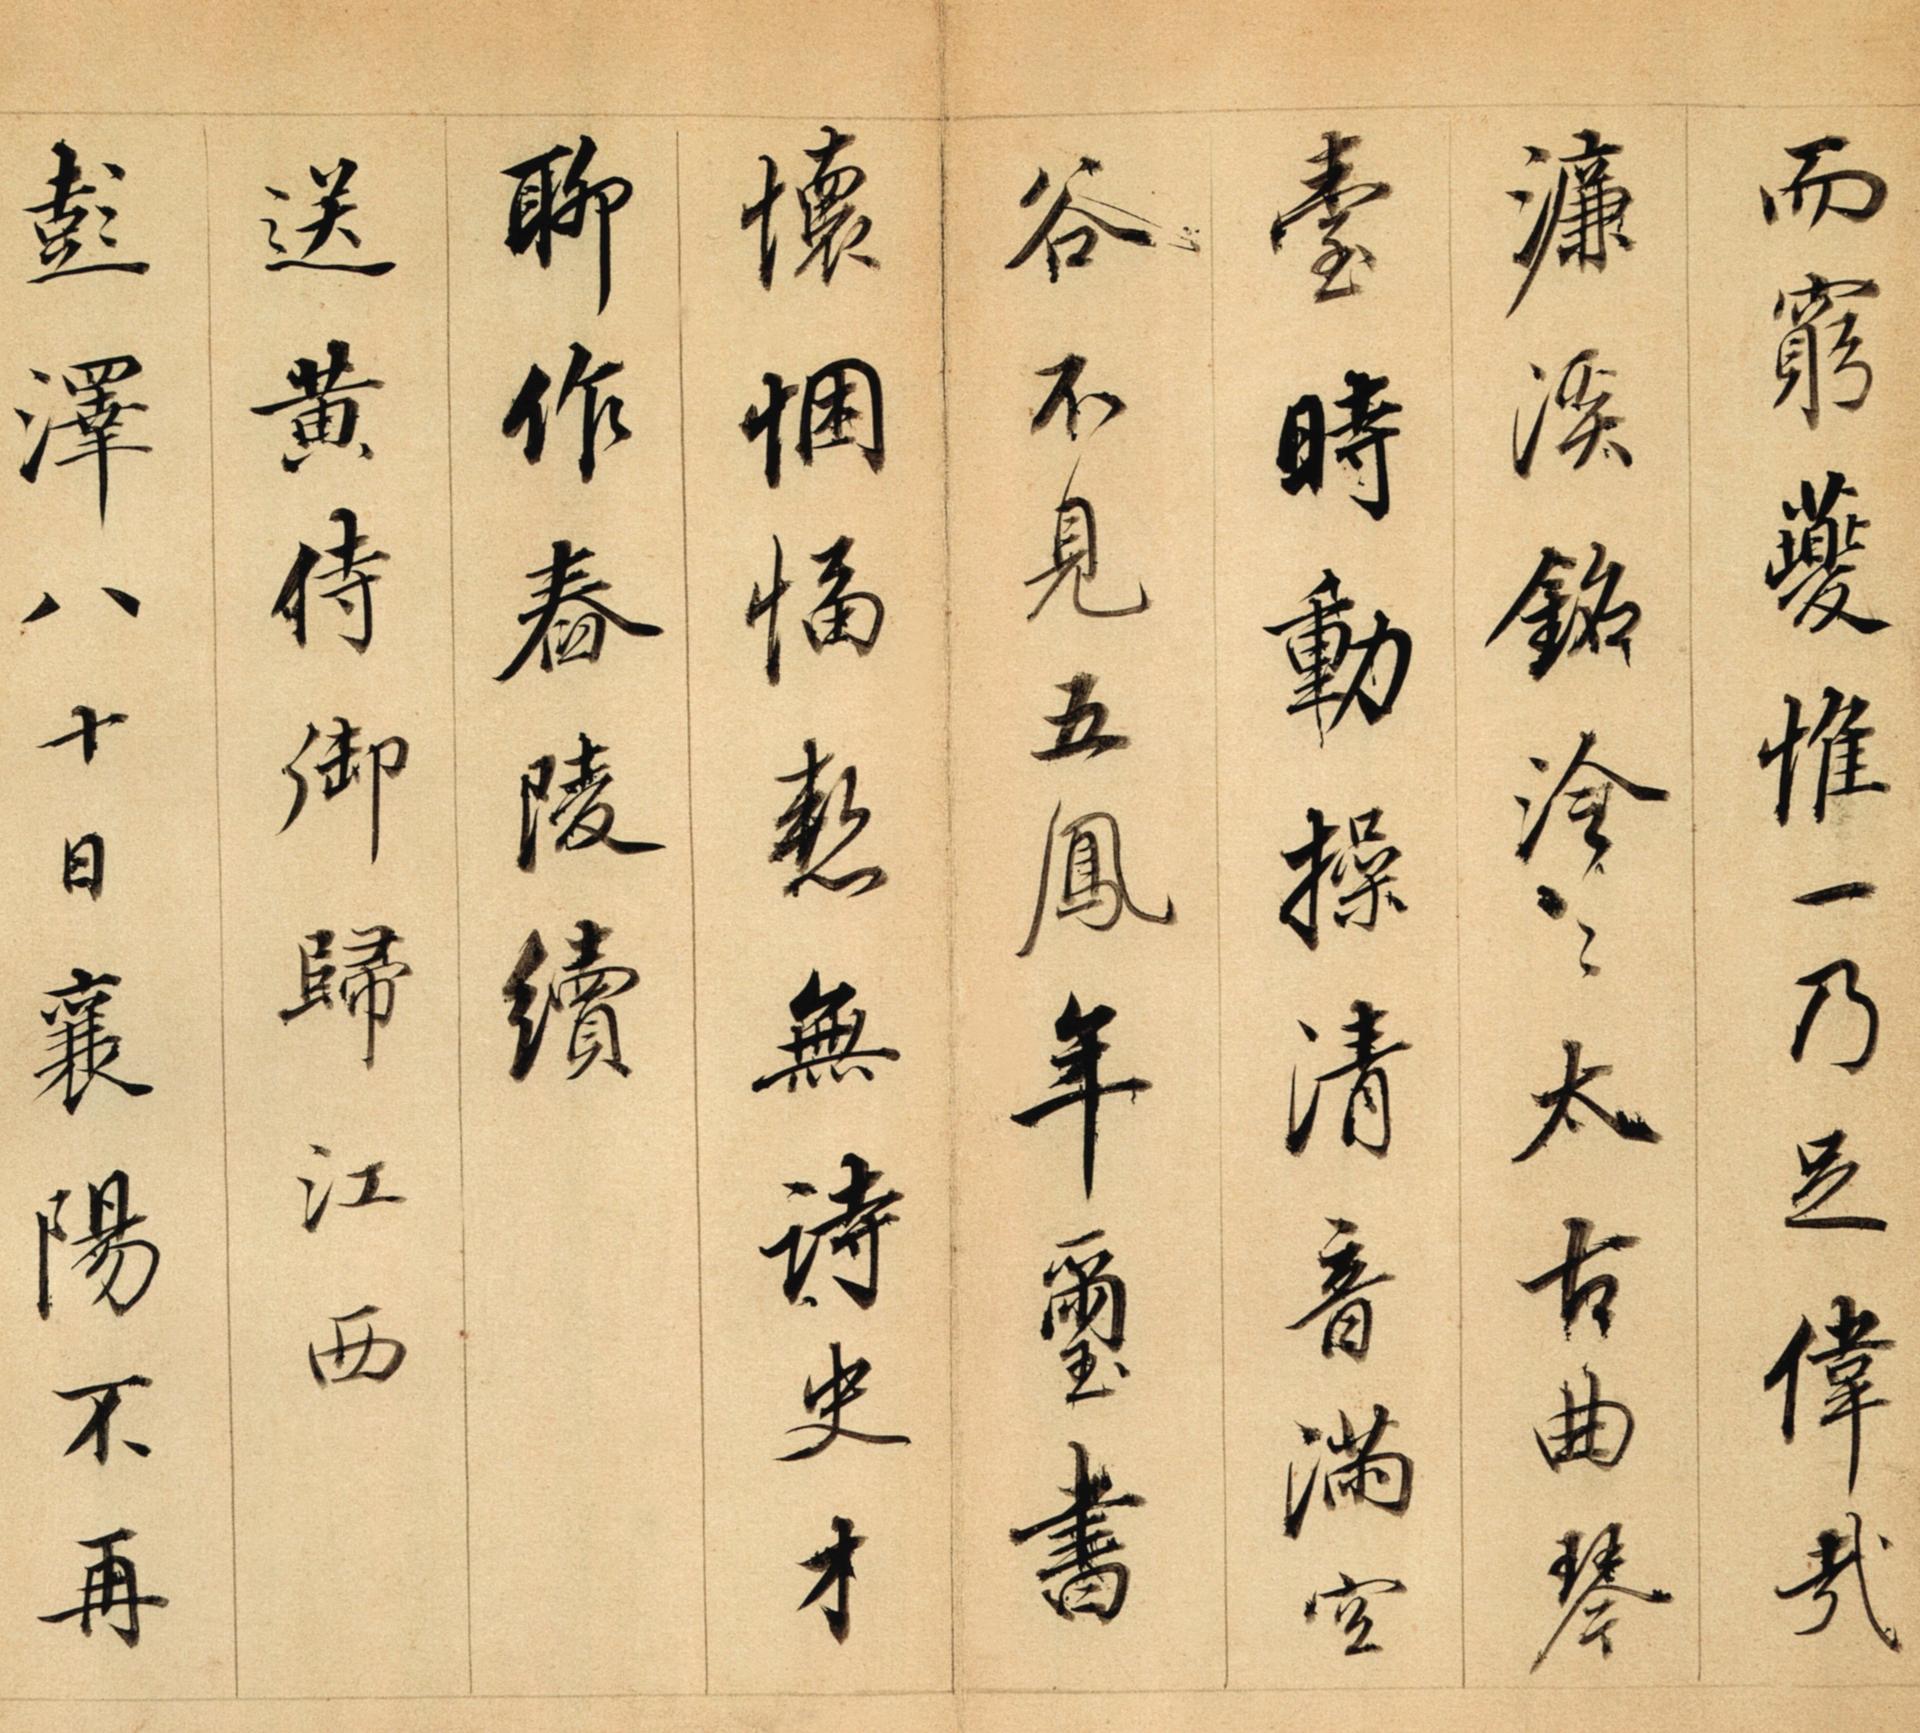 而窮夔惟一乃足偉哉
濂溪銘泠〻太古曲琴
臺時動操清音滿空
谷不見五鳳年璽書
懷悃愊愁無詩史才
聊作舂陵續
送黃侍御歸江西
彭澤八十日襄陽不再